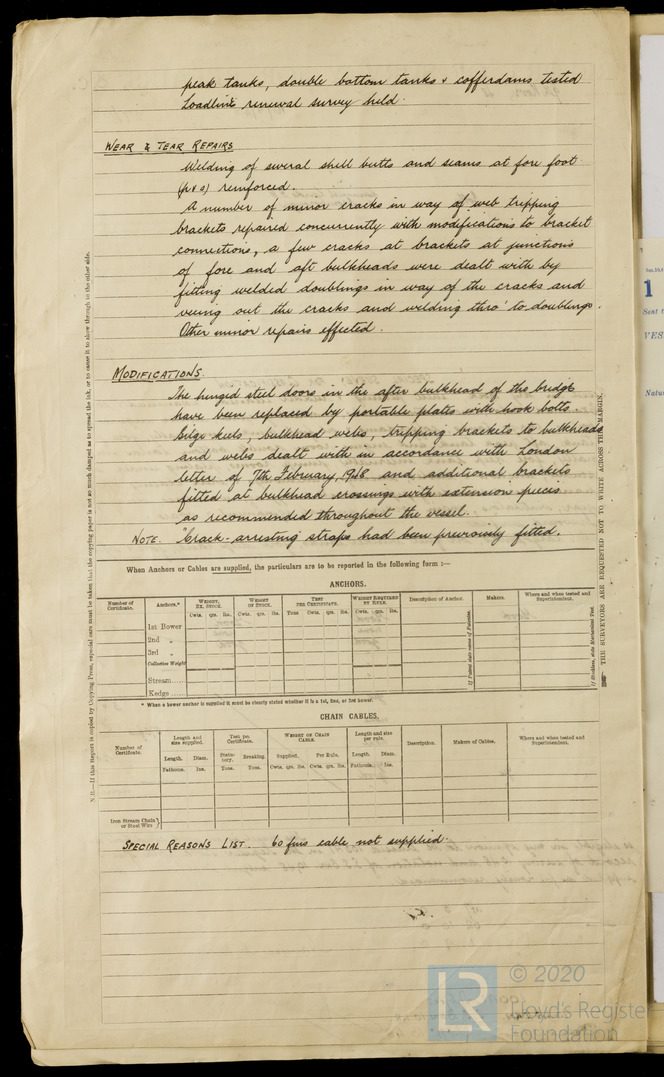 peak tanks, double bottom tanks & cofferdams tested
Loadline renewal survey held.
WEAR & TEAR REPAIRS
Welding of several shell butts and seams at fore foot
(p & s) reinforced.
A number of minor cracks in way of web tripping
brackets repaired concurrently with modifications to bracket
connections, a few cracks at brackets at junctions
of fore and aft bulkheads were dealt with by
fitting welded doublings in way of the cracks and
veeing out the cracks and welding thro' to doublings.
Other minor repairs effected.
MODIFICATIONS
The hinged steel doors in the after bulkhead of the bridge
have been replaced by portable plates with hook bolts.
Bilge keels, bulkhead webs, tripping brackets to bulkheads
and webs dealt with in accordance with London
letter of 7th February, 1948 and additional brackets
fitted at bulkhead crossings with extension pieces
as recommended throughout the vessel.
NOTE. "Crack-arresting straps had been previously fitted.
When Anchors or Cables are supplied, the particulars are to be reported in the following form :—
ANCHORS.
Number of Certificate. Anchors.* WEIGHT, EX. STOCK. WEIGHT OF STOCK. TEST PER CERTIFICATE. WEIGHT REQUIRED BY RULE. Description of Anchor. Makers. Where and when tested and Superintendent.
Cwts. qrs. lbs. Cwts. qrs. lbs. Tons Cwts. qrs. lbs. Cwts. qrs. lbs.
1st Bower
2nd „
3rd „
Collective Weight
Stream
Kedge
If Patent state name of Patentee.
If Stockless, state Mechanical Test.
* When a bower anchor is supplied it must be clearly stated whether it is a 1st, 2nd, or 3rd bower.
CHAIN CABLES.
Number of Certificate. Length and size supplied. Test per Certificate. WEIGHT OF CHAIN CABLE. Length and size per rule. Description. Makers of Cables. Where and when tested and Superintendent.
Length. Diam. Statutory. Breaking. Supplied. Per Rule. Length. Diam.
Fathoms. Ins. Tons. Tons. Cwts. qrs. lbs. Cwts. qrs. lbs. Fathoms. Ins.
Iron Stream Chain
or Steel Wire
SPECIAL REASONS LIST. 60 fms cable not supplied.
N.B.—If this Report is copied by Copying Press, especial care must be taken that the copying paper is not so much damped as to spread the ink, or to cause it to show through to the other side.
THE SURVEYORS ARE REQUESTED NOT TO WRITE ACROSS THIS MARGIN.
1
Sent
VES
Natu
LR
© 2020
Lloyd's Register
Foundation